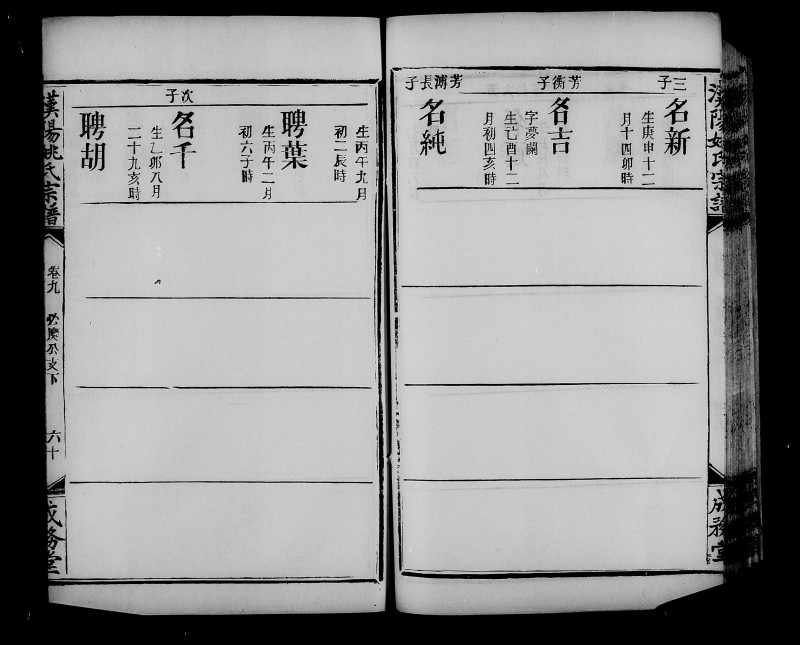 漢陽姚氏宗譜
成務堂
三子
名新
生庚申十二
月十四卯時
芳衡子
名吉
字夢蘭
生己酉十二
月初四亥時
芳溥長子
名純
生丙午九月
初二辰時
聘葉
生丙午二月
初六子時
次子
名千
生乙卯八月
二十九亥時
聘胡
漢陽姚氏宗譜
卷九
六十
成務堂